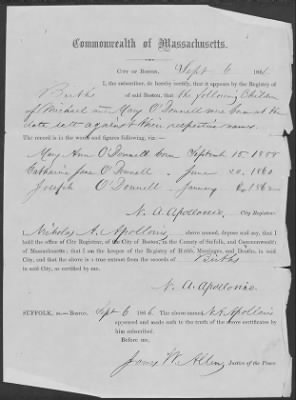 Commonwealth of Massachusetts.
CITY OF BOSTON, Sept 6 1866.
I, the subscriber, do hereby certify, that it appears by the Registry of
Births of said Boston, that the following Children
of Michael and Mary O'Donnell were born at the
date set against their respective names.
The record is in the words and figures following, viz:—
Mary Ann O'Donnell born September 15. 1858
Catharine Jane O'Donnell - June 20. 1860
Joseph O'Donnell - January 1862
N. A. Apollonio, City Registrar.
Nicholas A. Apollonio, above named, depose and say, that I
hold the office of City Registrar, of the City of Boston, in the County of Suffolk, and Commonwealth
of Massachusetts; that I am the keeper of the Registry of Births, Marriages, and Deaths, in said City,
and that the above is a true extract from the records of Births
in said City, as certified by me.
N. A. Apollonio
SUFFOLK, ss.—BOSTON. Sept 6 1866. The above named N. A. Apollonio
appeared and made oath to the truth of the above certificates by
him subscribed.
Before me,
James W. Allen, Justice of the Peace.